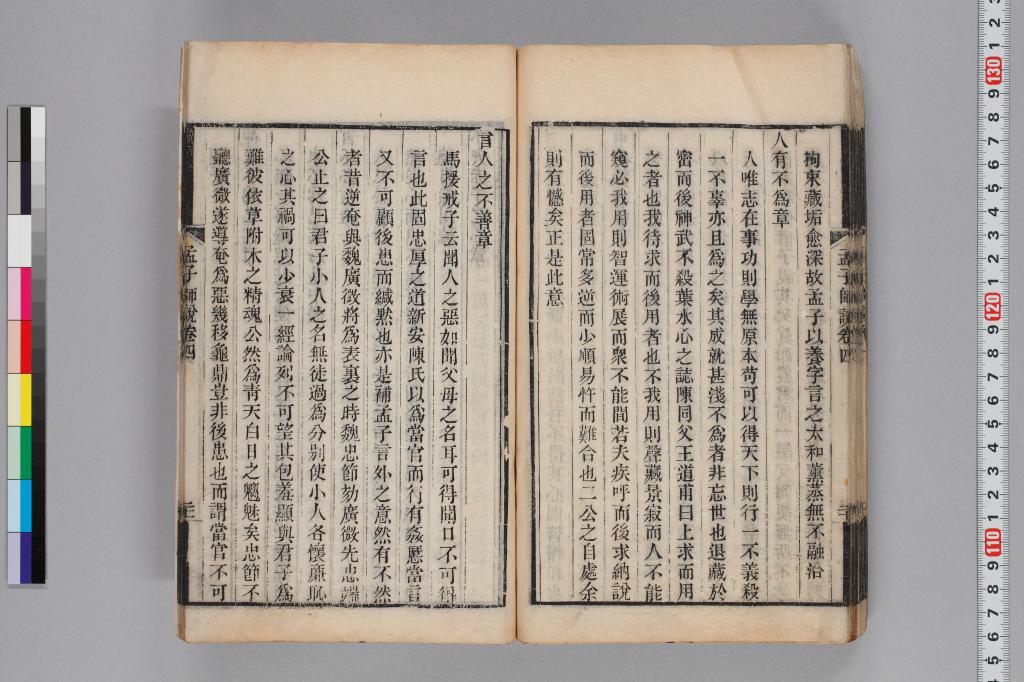 拘束藏垢愈深故孟子以養字言之太和薰蒸無不融洽
人有不爲章
人唯志在事功則學無原本苟可以得天下則行一不義殺
一不辜亦且爲之矣其成就甚淺不爲者非忘世也退藏於
密而後神武不殺葉水心之誌陳同父王道甫曰上求而用
之者也我待求而後用者也不我用則聲藏景寂而人不能
窺必我用則智運術展而衆不能間若夫疾呼而後求納說
而後用者固常多逆而少順易忤而難合也二公之自處余
則有憾矣正是此意
孟子師說卷四
言人之不善章
馬援戒子云聞人之惡如聞父母之名耳可得聞口不可得
言也此固忠厚之道新安陳氏以爲當官而行有姦慝當言
又不可顧後患而緘默也亦是補孟子言外之意然有不然
者昔逆奄與魏廣微將爲表裏之時魏忠節劾廣微先忠端
公止之曰君子小人之名無徒過爲分別使小人各懷廉恥
之心其禍可以少衰一經論列不可望其包羞顯與君子爲
難彼依草附木之精魂公然爲青天白日之魑魅矣忠節不
聽廣微遂導奄爲惡幾移龜鼎豈非後患也而謂當官不可
孟子師說卷四
130
120
110